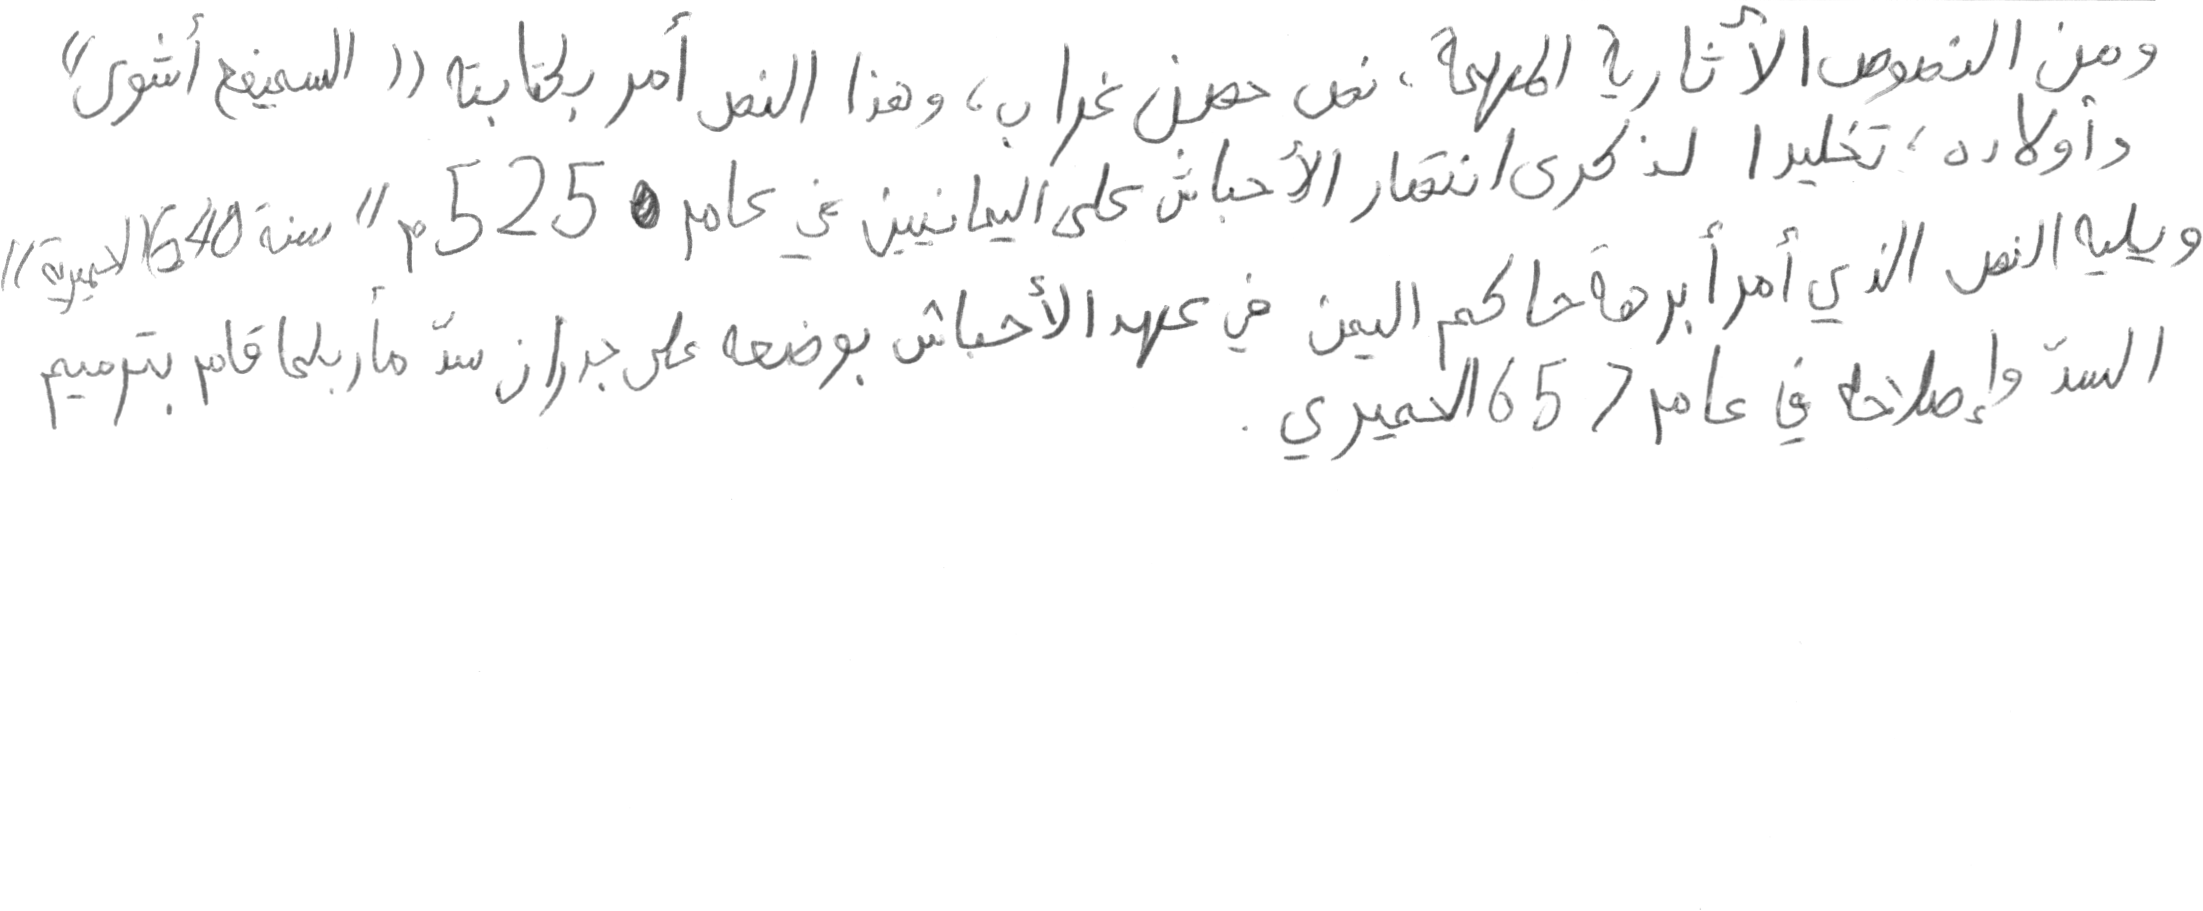 ومن النصوص الآثارية المهمة، نص حصن غراب، وهذا النص أمر بكتابته "السميفع أشوى"
وأولاده، تخليدا لذكرى انتصار الأحباش على اليمانيين في عام 525م "سنة 640 الحميرية"
ويليه النص الذي أمر أبرهة حاكم اليمن في عهد الأحباش بوضعه على جدران سدّ مأرب لما قام بترميم
السدّ وإصلاحه في عام 657 الحميري.